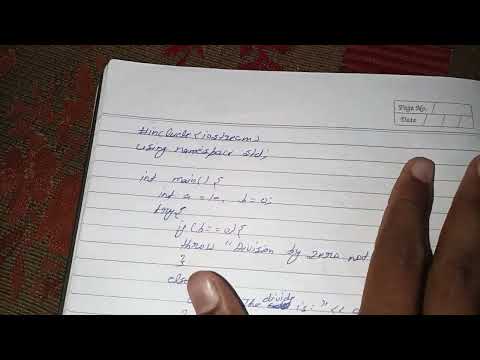 Page No.
Date
#include<iostream>
using namespace std;
int main() {
int a = 10, b = 0;
try{
if (b == 0) {
throw "Divison by zero not
}
else
The divide is: " <<